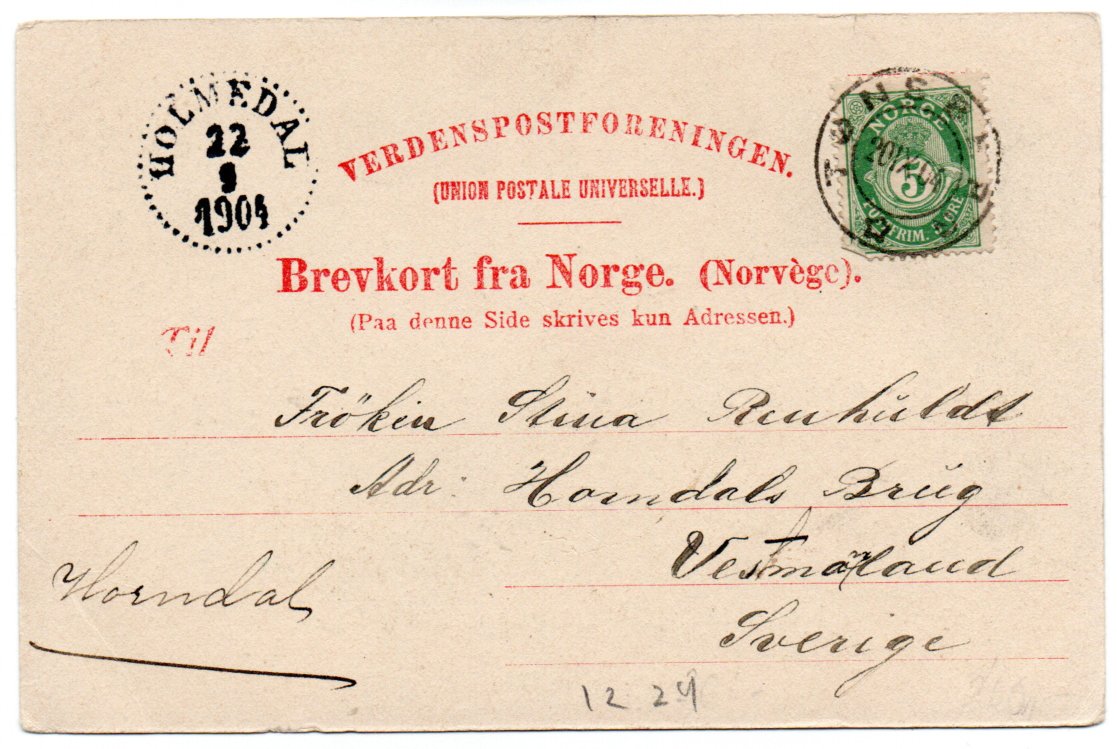 HOLMEDAL
22
9
1904
VERDENSPOSTFORENINGEN.
(UNION POSTALE UNIVERSELLE.)
Brevkort fra Norge. (Norvège).
(Paa denne Side skrives kun Adressen.)
TØNSBERG
20 IX 04
B
NORGE
5
POSTFRIM. 5 ØRE
Til
Frökin Stina Renhuldt
Adr: Horndals Brüg
Vestmanland
Sverige
Horndal
12 24